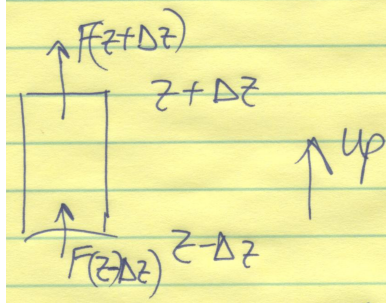 F(z+Δz)
z+Δz
up
F(z-Δz)
z-Δz